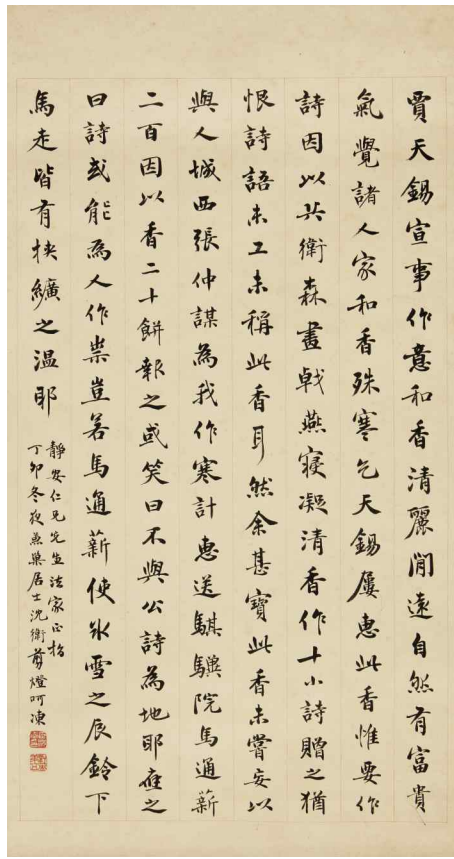 賈天錫宣事作意和香清麗閒遠自然有富貴
氣覺諸人家和香殊寒乞天錫屢惠此香惟要作
詩因以兵衛森畫戟燕寢凝清香作十小詩贈之猶
恨詩語未工未稱此香耳然余甚寶此香未嘗妄以
與人城西張仲謀為我作寒計惠送騏驥院馬通薪
二百因以香二十餅報之或笑曰不與公詩為地耶應之
曰詩或能為人作祟豈若馬通薪使冰雪之辰鈴下
馬走皆有挾纊之溫耶
靜安仁兄先生法家正楷
丁卯冬夜兼巢居士沈衛剪燈呵凍